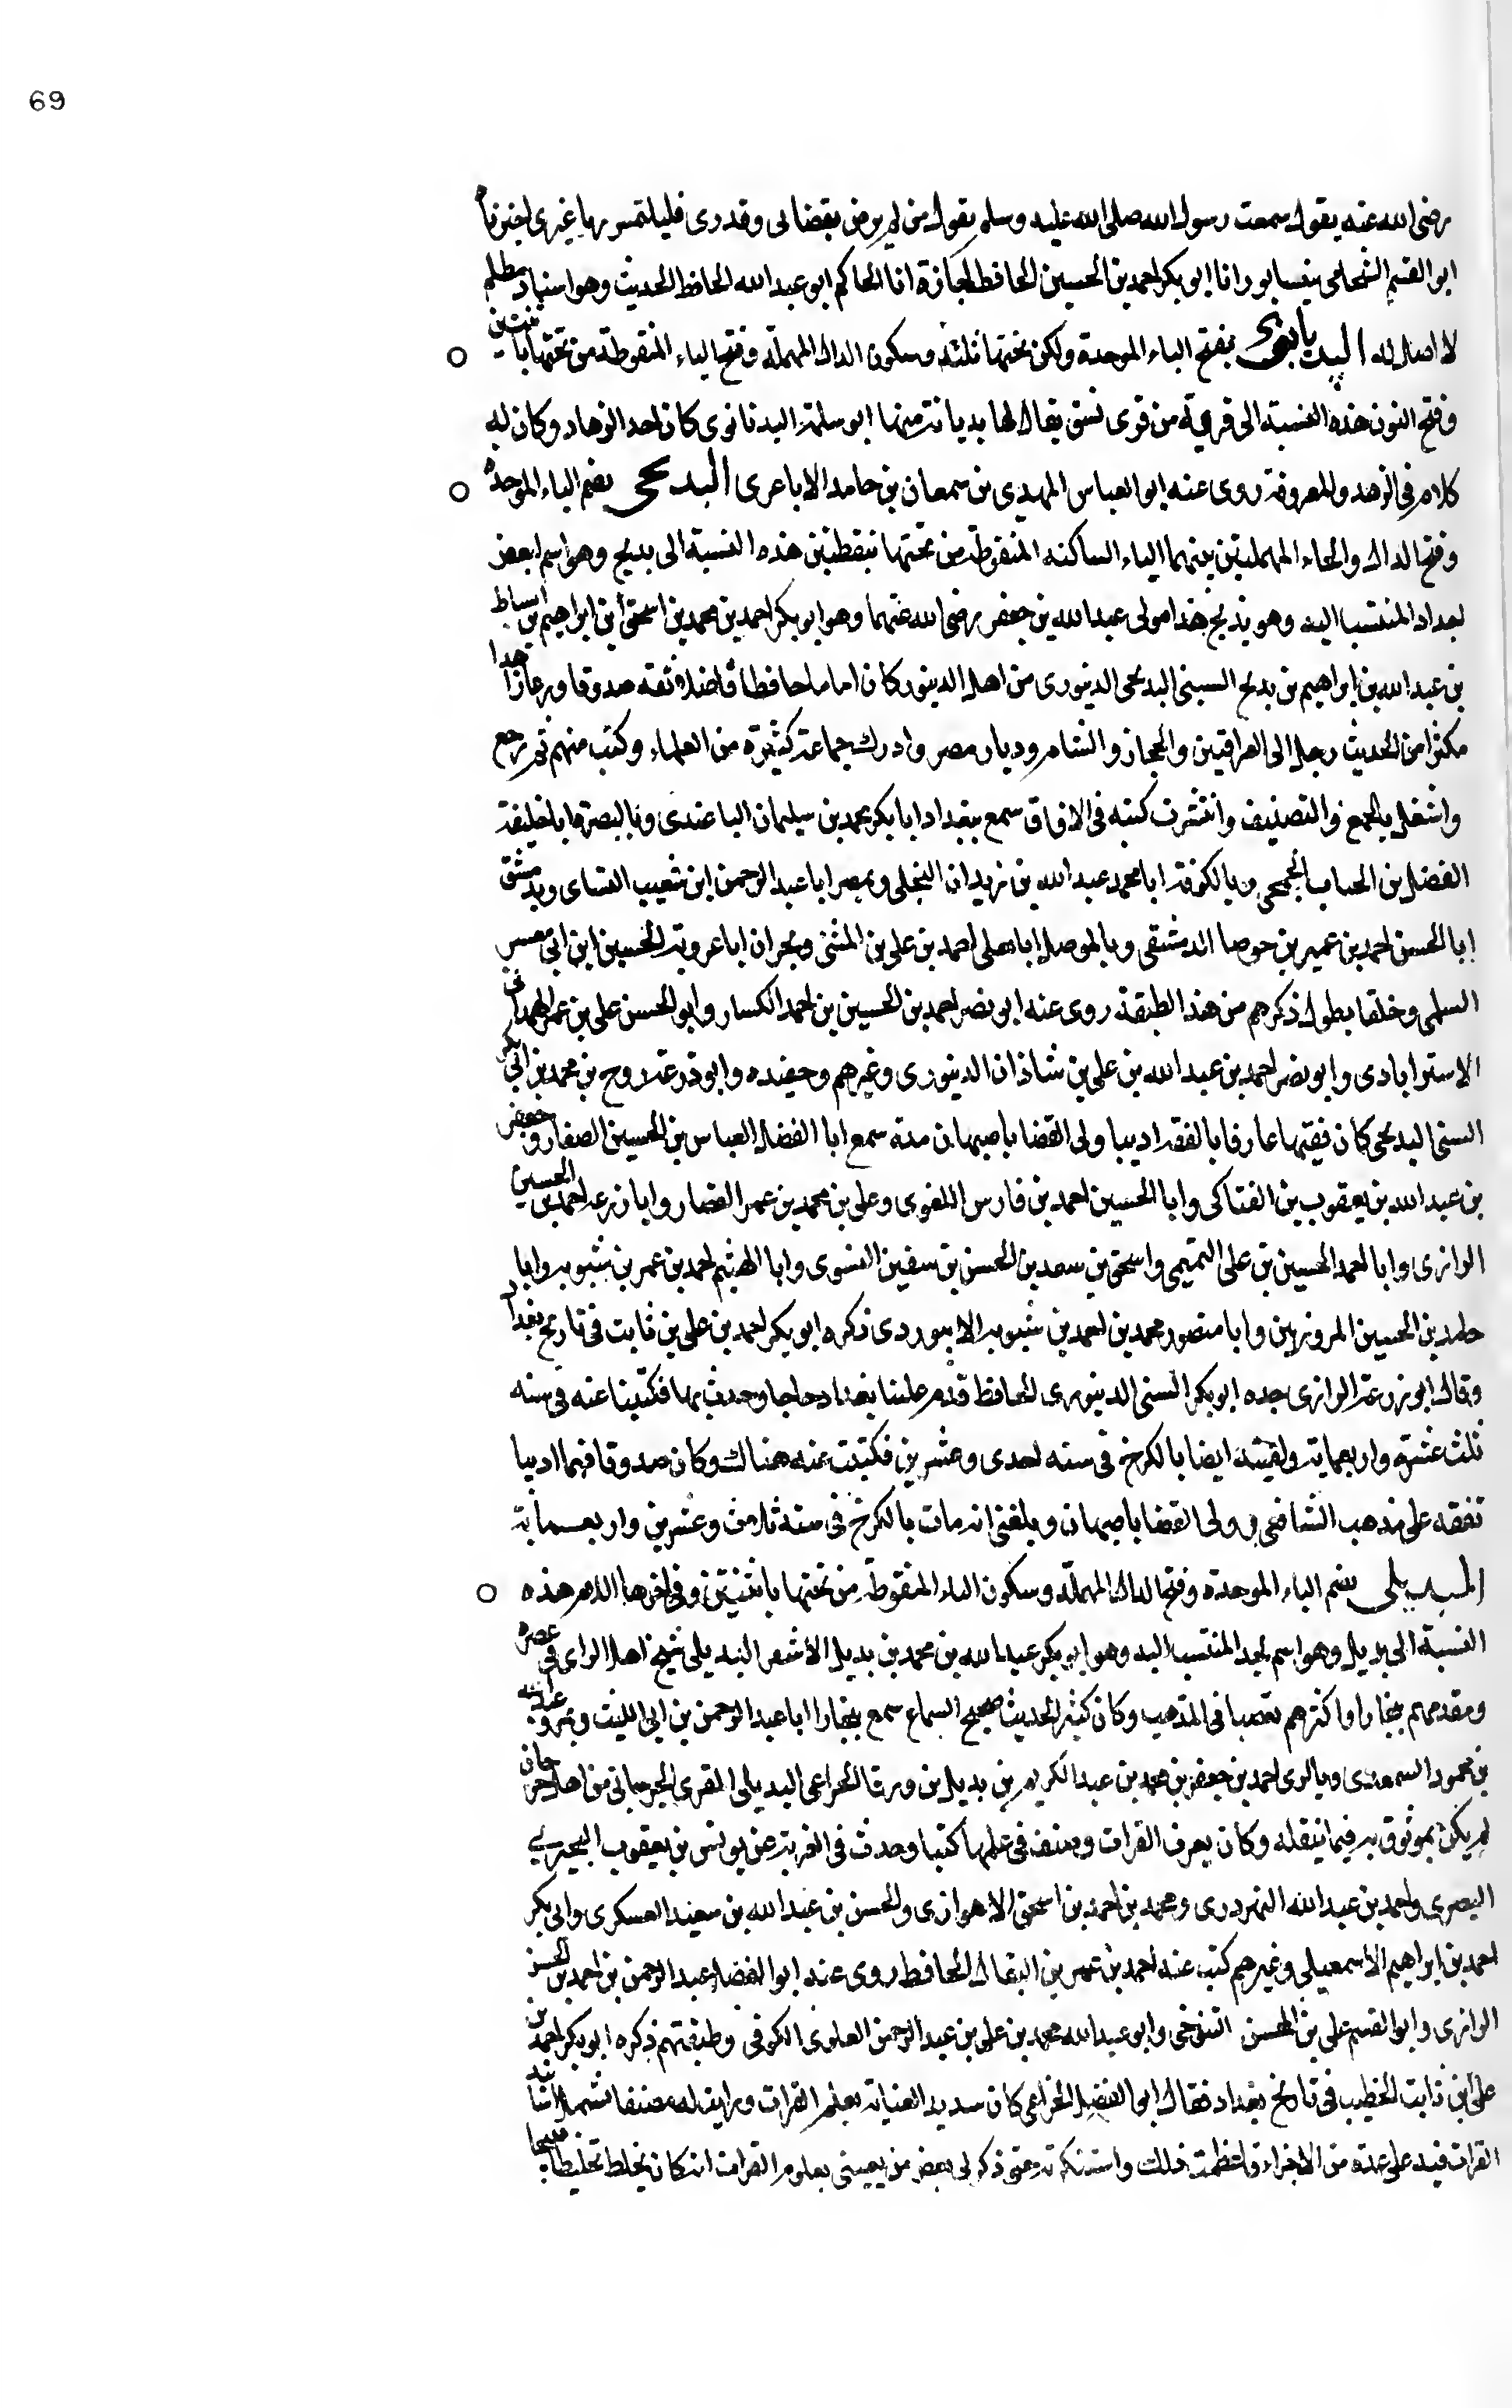 69
رضى الله عنه يقول سمعت رسول الله صلى الله عليه وسلم يقول من لم يرض بقضائى وقدرى فليلتمس ربا غيرى اخبرناه
ابو القسم الشحامى بنيسابور انا ابو بكر احمد بن الحسين الحافظ اجازة انا الحاكم ابو عبد الله الحافظ الحديث وهو اسناد مظلم
لا اصل له البديانوى بفتح الباء الموحدة ولكن تحتها ثلثة وسكون الدال المهملة وفتح الياء المنقوطة من تحتها باثنتين
وفتح النون هذه النسبة الى قرية من قرى نسف يقال لها بديانة منها ابو سلمة البديانوى كان احد الزهاد وكان له
كلام فى الزهد والمعرفة روى عنه ابو العباس المهدى بن سمعان بن حامد الاباعرى البديحى بضم الباء الموحدة
وفتح الدال والحاء المهملتين بينهما الياء الساكنه المنقوطة من تحتها بنقطتين هذه النسبة الى بديح وهو اسم لبعض
اجداد المنتسب اليه وهو بديح هذا مولى عبد الله بن جعفر رضى الله عنهما وهو ابو بكر احمد بن محمد بن اسحق ابن ابراهيم بن اسباط
بن عبد الله بن ابراهيم بن بديح السنى البديحى الدينورى من اهل الدينور كان اماما حافظا فاضلا ثقه صدوقا ورعا زاهدا
مكثرا من الحديث رحل الى العراقين والحجاز والشام وديار مصر وادرك جماعة كثيرة من العلماء وكتب منهم ثم رجع
واشتغل بالجمع والتصنيف وانتشرت كتبه فى الافاق سمع ببغداد ابا بكر محمد بن سليمان الباغندى وبالبصرة ابا خليفة
الفضل بن الحباب الجمحى وبالكوفة ابا محمد عبد الله بن زيدان البجلى وبمصر ابا عبد الرحمن ابن شعيب النساى وبدمشق
ابا الحسن احمد بن عمير بن حوصا الدمشقى وبالموصل ابا يعلى احمد بن على بن المثنى وبحران ابا عروبة الحسين ابن ابى معسر
السلمى وخلقا يطول ذكرهم من هذه الطبقة روى عنه ابو نصر احمد بن الحسين بن احمد الكسار وابو الحسن على بن عمر الهمدانى
الاستراباذى وابو نصر احمد بن عبد الله بن على بن شاذان الدينورى وغيرهم وحفيده وابو زرعة روح بن محمد بن ابى بكر
السنى البديحى كان فقيها عارفا بالفقه اديبا ولى القضا باصبهان مدة سمع ابا الفضل العباس بن الحسين الصفار وجعفر
بن عبد الله بن يعقوب بن الفناكى وابا الحسين احمد بن فارس اللغوى وعلى بن محمد بن عمر القصار وابا زرعه احمد بن الحسين
الرازى وابا احمد الحسين بن على التميمى واسحق بن سعد بن الحسن بن سفين النسوى وابا الهيثم احمد بن عمر بن شبويه وابا
حامد بن الحسين المروزيين وابا منصور محمد بن احمد بن شبويه الابيوردى ذكره ابو بكر احمد بن على بن ثابت فى تاريخ بغداد
وقال ابو زرعة الرازى جده ابو بكر السنى الدينورى الحافظ قدم علينا بغداد حاجا وحدث بها فكتبنا عنه فى سنه
ثلث عشرة واربعماية ولقيته ايضا بالكرخ فى سنه احدى وعشرين فكتبت عنه هناك وكان صدوقا فهما اديبا
تفقه على مذهب الشافعى وولى القضا باصبهان وبلغنى انه مات بالكرخ فى سنة ثلاث وعشرين واربعماية
البديلى بضم الباء الموحدة وفتح الدال المهملة وسكون الياء المنقوطة من تحتها باثنتين وفى اخرها اللام هذه
النسبة الى بديل وهو اسم لجد المنتسب اليه وهو ابو بكر عبد الله بن محمد بن بديل الاشعر البديلى شيخ اهل الراى فى عصره
ومقدمهم ببخارا واكثرهم تعصبا فى المذهب وكان كثير الحديث صحيح السماع سمع ببخارا ابا عبد الرحمن بن ابى الليث وبمرو عبد الله
بن محمود السعدى وبالرى احمد بن جعفر بن محمد بن عبد الكريم بن بديل بن ورقا الخزاعى البديلى المقرى الجرجانى من اهل جرجان
لم يكن بموثوق به فيما ينقله وكان يعرف القرات وصنف فى علمها كتبا وحدث فى الغربة عن يونس بن يعقوب البجيرى
البصرى واحمد بن عبد الله النهرديرى ومحمد بن احمد بن اسحق الاهوازى والحسن بن عبد الله بن سعيد العسكرى وابى بكر
احمد بن ابراهيم الاسمعيلى وغيرهم كتب عنه احمد بن عمر بن البقال الحافظ روى عنه ابو الفضل عبد الرحمن بن احمد بن الحسن
الرازى وابو القسم على بن المحسن التنوخى وابو عبد الله محمد بن على بن عبد الرحمن العلوى الكوفى وطبقتهم ذكره ابو بكر احمد بن
على ابن ثابت الخطيب فى تاريخ بغداد فقال ابو الفضل الخزاعى كان شديد العناية بعلم القرات ورايت له مصنفا يشتمل اسانيد
القرات فيه على عدة من الاجزاء فاعظمت ذلك واستنكرته حتى ذكر لى بعض من يعتنى بعلوم القرات انه كان يخلط تخليطا قبيحا